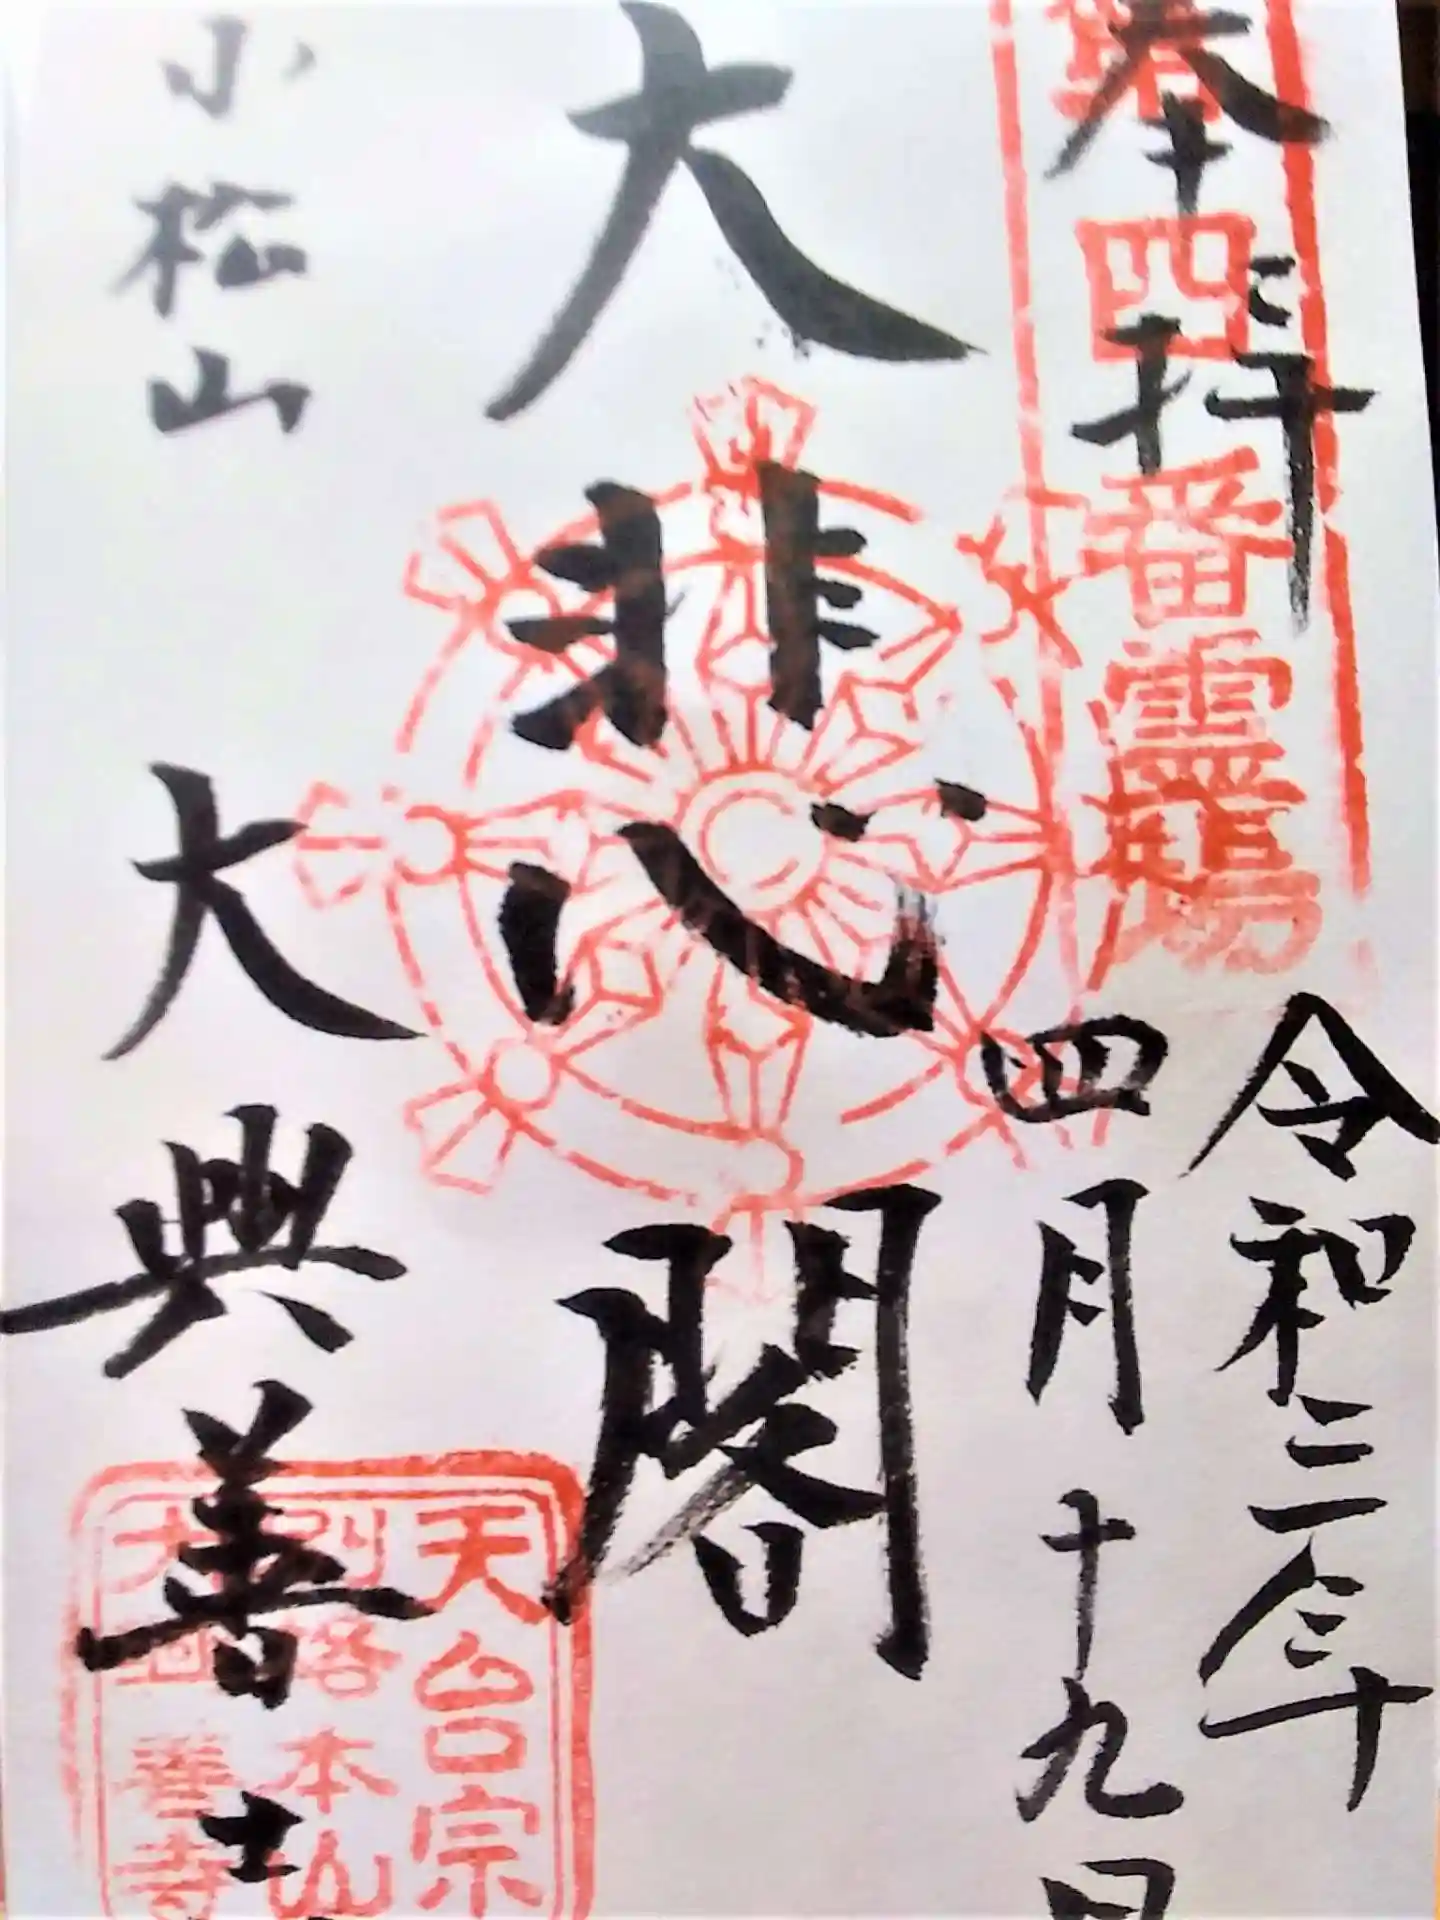 奉拝
四番霊場
令和三年
四月十九日
大悲閣
小松山
大興善寺
天台宗
別格本山
大興善寺